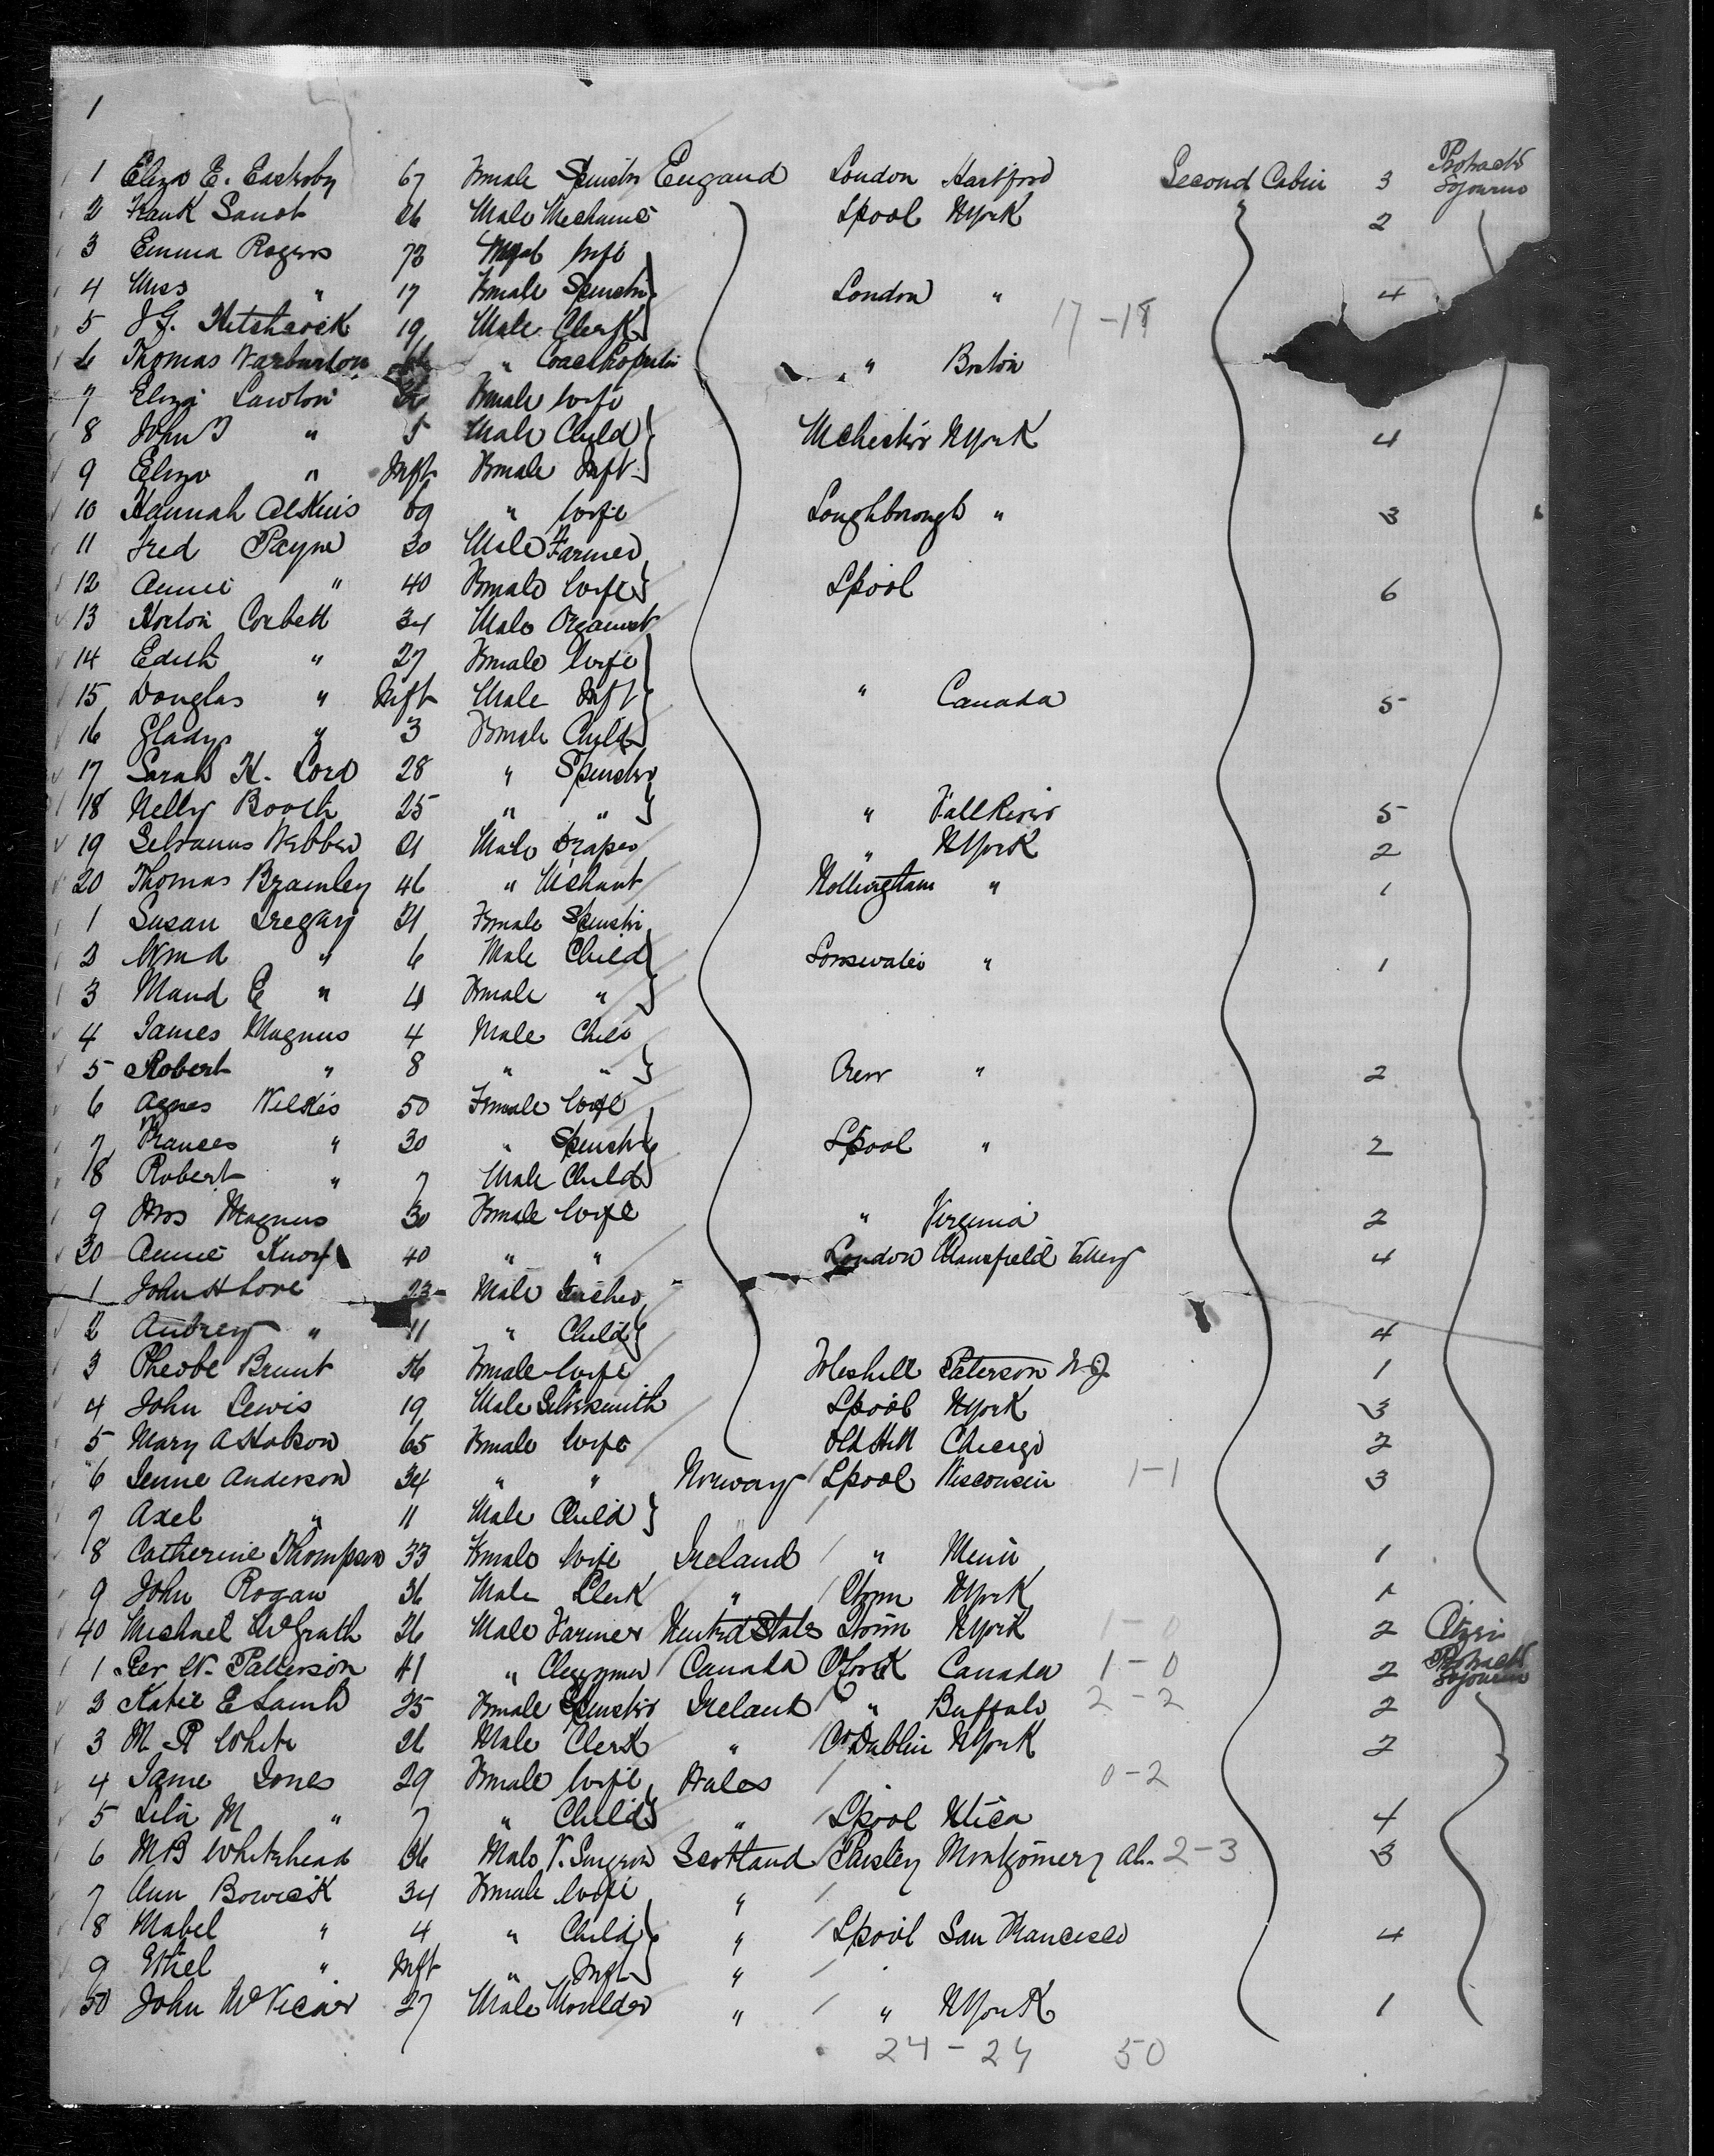 1
1 Eliza E. Eastroby 67 Female Spinster Engand London Hartford Second Cabin 3 Protracted Sojourn
2 Frank 26 Male Mechanic Lpool NYork " 2
3 Emma Rogers 73 wife
4 Miss " 17 Female Spinster London " 4
5 J G. Hitchcock 19 Male Clerk 17-18
6 Thomas Warburton " " Boston
7 Eliza Lawton Female wife
8 John T " 5 Male Child Mchester NYork 4
9 Eliza " Inft Female Inft
10 Hannah 69 " wife Loughborough " 3
11 Fred Payne 30 Male Farmer
12 Annie " 40 Female wife Lpool 6
13 Horton Corbett 34 Male Organist
14 Edith " 27 Female wife
15 Douglas " Inft Male Inft " Canada 5
16 Gladys " 3 Female Child
17 Sarah H. Lord 28 " Spinster
18 Nelly Booth 25 " " " Fall River 5
19 Selvanus Webber 21 Male Draper " NYork 2
20 Thomas Bramley 46 " Mchant Nottingham " 1
1 Susan Gregary 21 Female Spinster
2 Wm A " 6 Male Child " 1
3 Maud E " 4 Female "
4 James Magnus 4 Male Child
5 Robert " 8 " " " 2
6 Agnes Wilkes 50 Female wife
7 Frances " 30 " Spinster Lpool " 2
8 Robert " 7 Male Child
9 Mrs Magnus 30 Female wife " Virginia 2
30 Annie Knox 40 " " London Mansfield 4
1 John H Love 23 Male "
2 Aubrey " 11 " Child 4
3 Pheobe Brunt 56 Female wife Paterson N.J. 1
4 John Lewis 19 Male Silversmith Lpool NYork 3
5 Mary A Hobson 65 Female wife Old Hill Chicago 2
6 Jenne Anderson 34 " " Norway Lpool Wisconsin 1-1 3
7 Axel " 11 Male Child "
8 Catherine Thompson 33 Female wife Ireland " 1
9 John Rogan 36 Male Clerk " NYork 1
40 Michael McGrath 26 Male Farmer United States NYork 1-0 2
1 Rev W. Patterson 41 " Canada Canada 1-0 2 Protracted Sojourn
2 Katie E Lamb 25 Female Spinster Ireland " Buffalo 2-2 2
3 M R White 26 Male Clerk " Co Dublin NYork 2
4 Jones 29 Female wife Wales 0-2
5 Lila M " 7 " Child " Lpool Utica 4
6 M B Whitehead 36 Male V. Surgeon Scotland Paisley Montgomery Al. 2-3 3
7 Ann Bowick 34 Female wife "
8 Mabel " 4 " Child " Lpool San Francisco 4
9 Ethel " Inft " Inft "
50 John McVicar 27 Male Moulder " " NYork 1
24-24 50